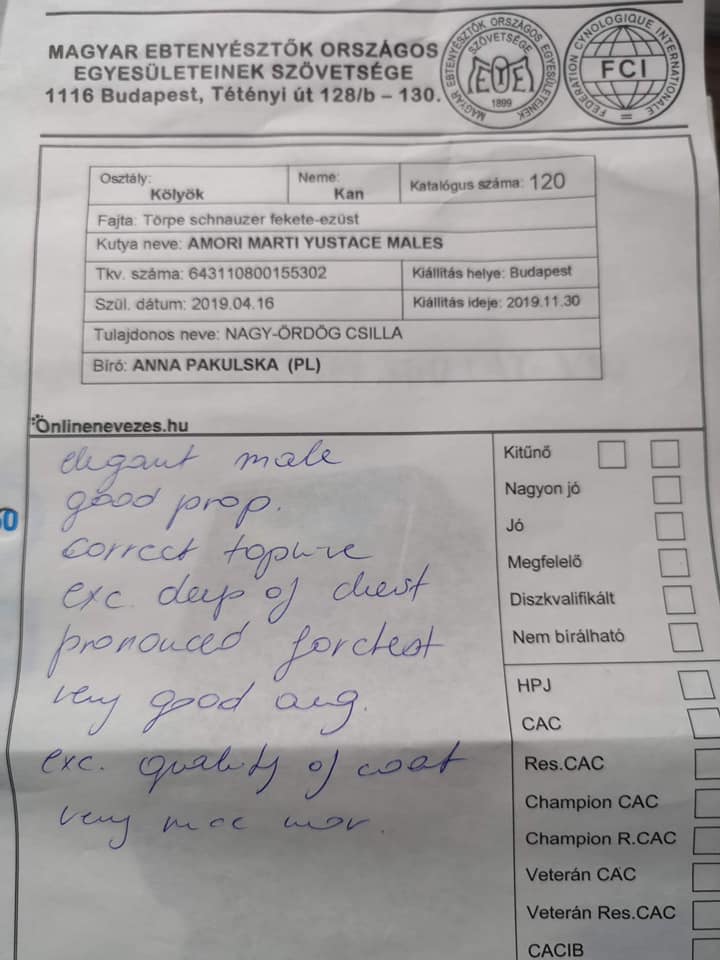 MAGYAR EBTENYÉSZTŐK ORSZÁGOS
EGYESÜLETEINEK SZÖVETSÉGE
1116 Budapest, Tétényi út 128/b – 130.
MAGYAR EBTENYÉSZTŐK ORSZÁGOS EGYESÜLETEINEK SZÖVETSÉGE
1899
FEDERATION CYNOLOGIQUE INTERNATIONALE
FCI
Osztály: Kölyök
Neme: Kan
Katalógus száma: 120
Fajta: Törpe schnauzer fekete-ezüst
Kutya neve: AMORI MARTI YUSTACE MALES
Tkv. száma: 643110800155302
Kiállítás helye: Budapest
Szül. dátum: 2019.04.16
Kiállítás ideje: 2019.11.30
Tulajdonos neve: NAGY-ÖRDÖG CSILLA
Bíró: ANNA PAKULSKA (PL)
Önlinenevezes.hu
elegant male
good prop.
correct topline
exc. deep of chest
pronouced forchest
very good ang.
exc. quality of coat
very nice mov.
Kitűnő
Nagyon jó
Jó
Megfelelő
Diszkvalifikált
Nem bírálható
HPJ
CAC
Res.CAC
Champion CAC
Champion R.CAC
Veterán CAC
Veterán Res.CAC
CACIB